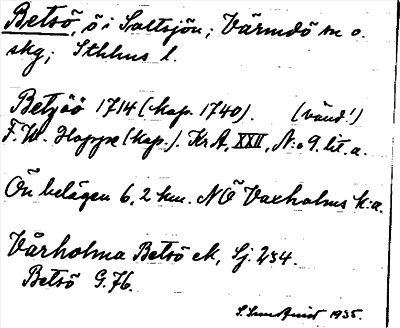 Betsö, ö i Saltsjön; Värmdö sn o.
skg; Sthlms l.
Betzöö 1714 (kop. 1740). (vänd!)
F. W. Hoppe (kop.). KrA, XXII, N:o 9. lit. a.
Ön belägen 6,2 km. NÖ Vaxholms k:a.
Vårholma Betsö ek, Sj. 234.
Betsö G.76.
S. Sundqvist 1935.